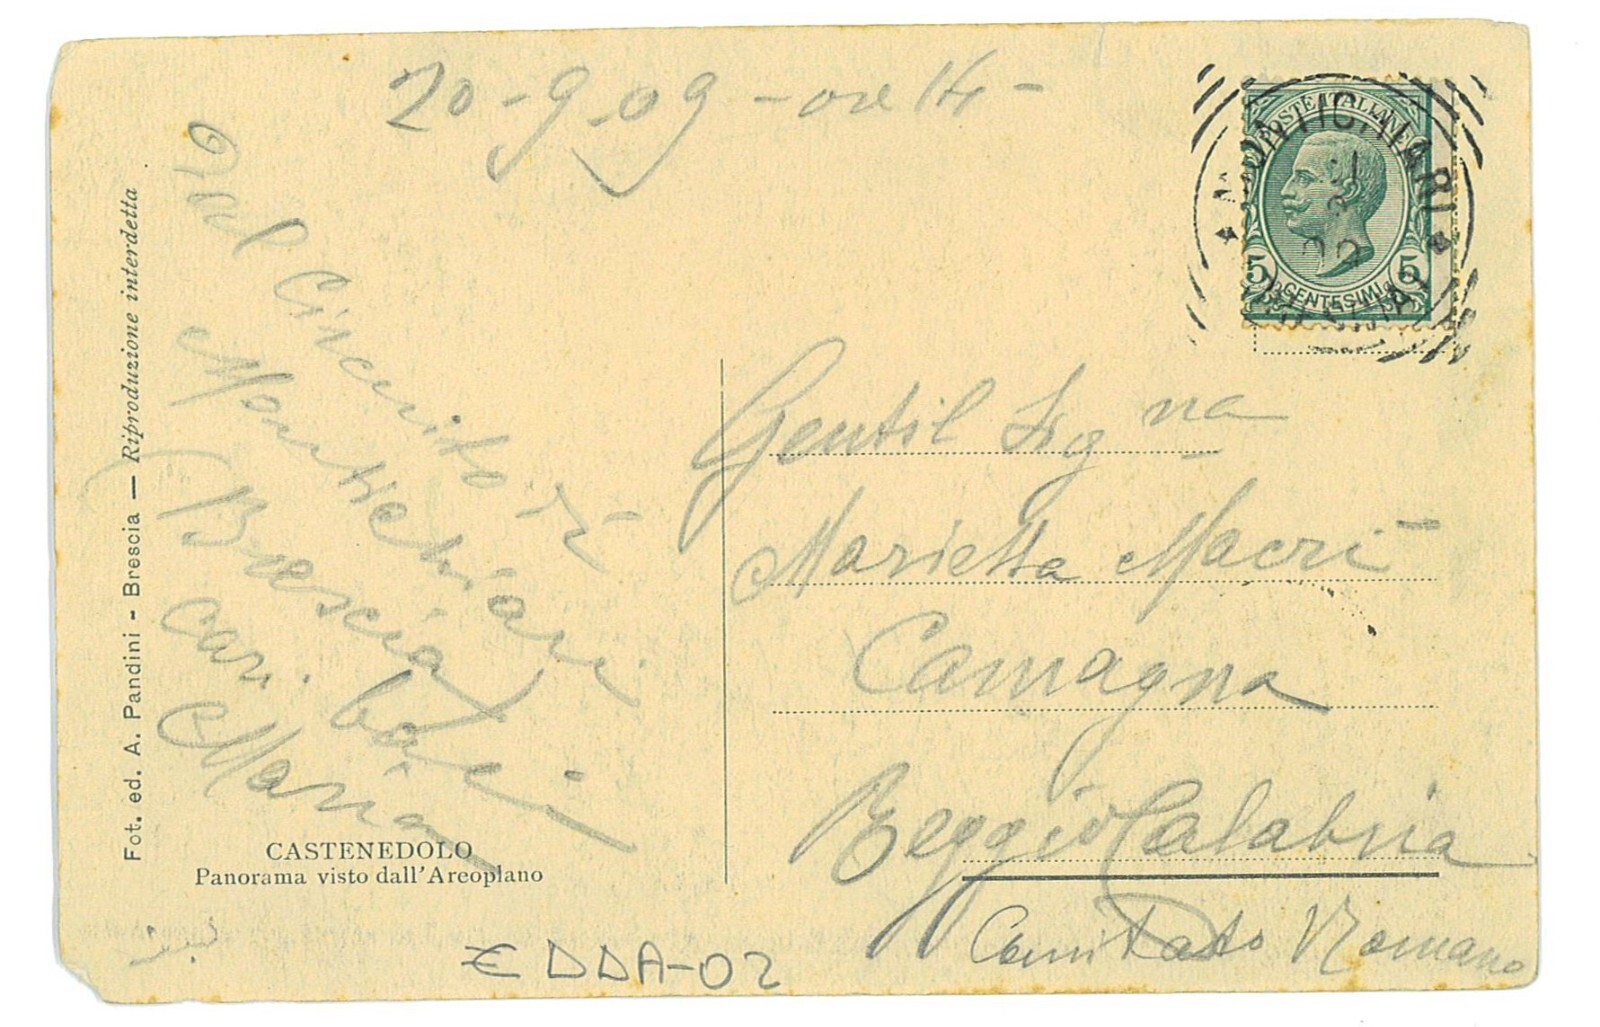 20-9-09 - ore 14 -
Dal Circuito di
Montichiari
(Brescia)
cari baci
Maria
POSTE ITALIANE
5 CENTESIMI 5
MONTICHIARI
Gentil Signa
Marietta Macrì
Camagna
Reggio Calabria
Comitato Romano
Fot. ed. A. Pandini - Brescia — Riproduzione interdetta
CASTENEDOLO
Panorama visto dall'Areoplano
€DDA-02